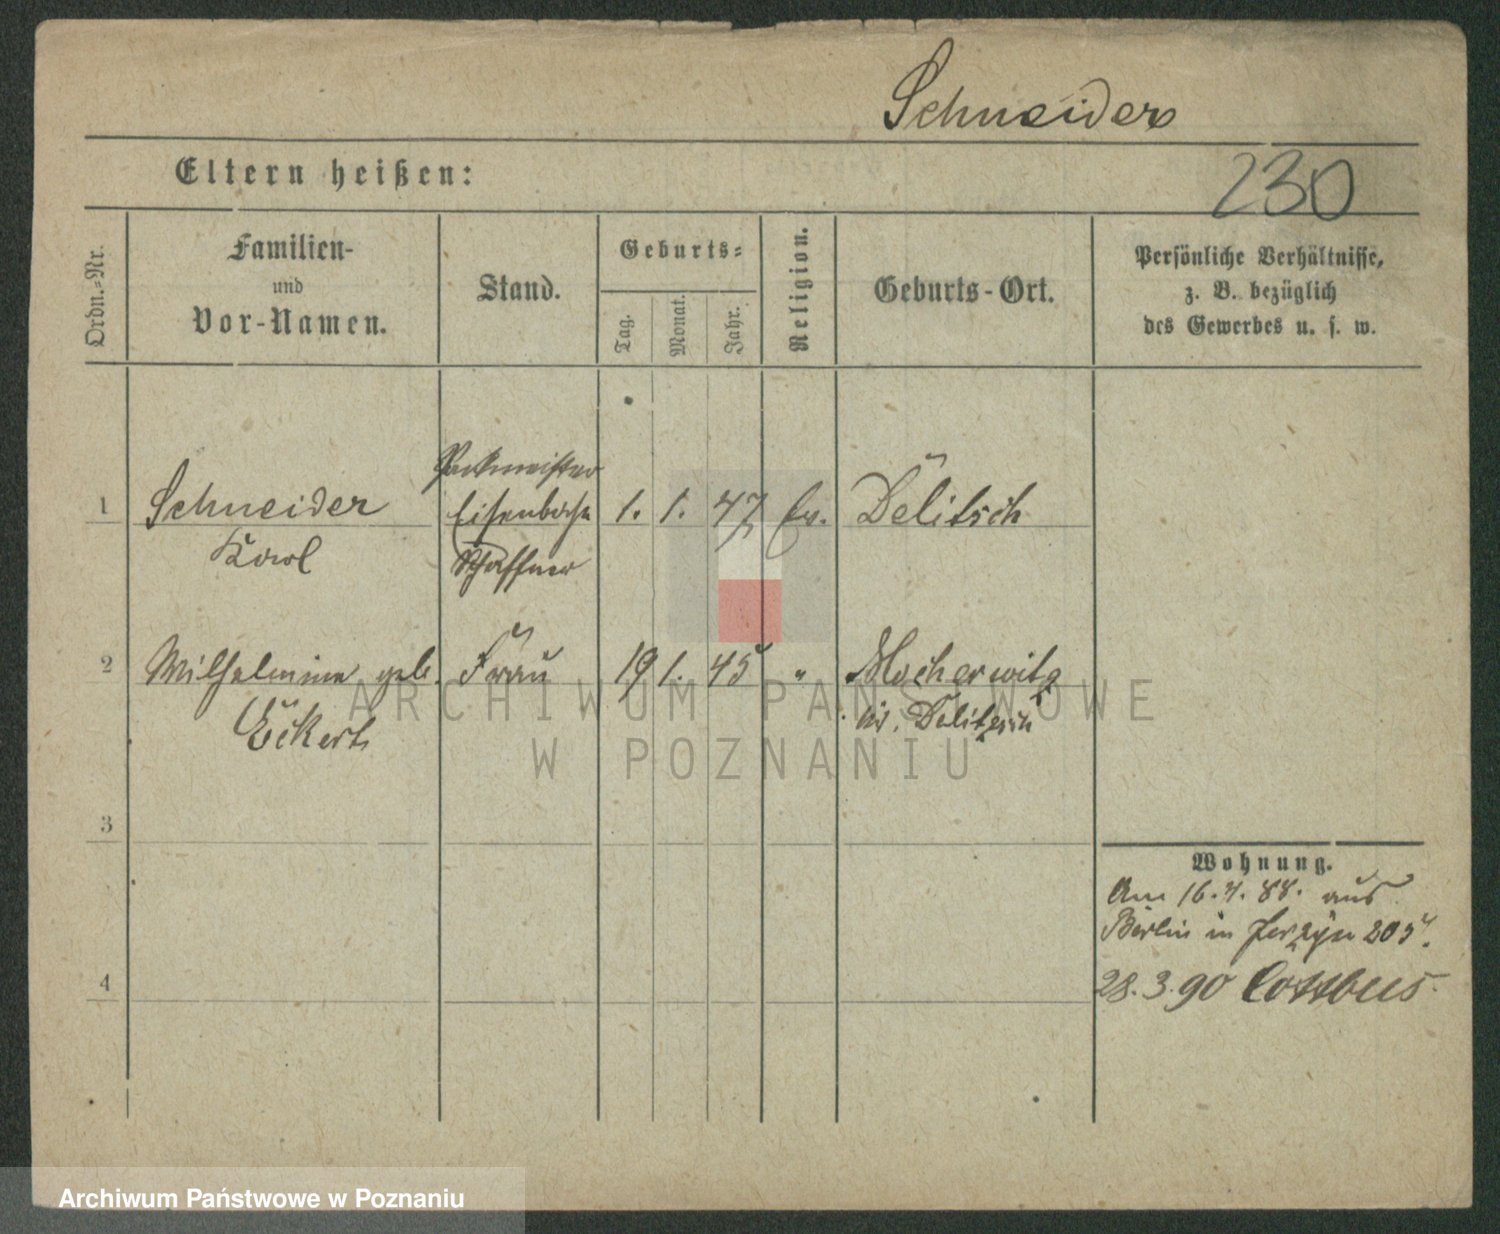 Schneider
Eltern heißen:
230
Ordn.-Nr.
Familien-
und
Vor-Namen.
Stand.
Geburts-
Tag.
Monat.
Jahr.
Religion.
Geburts-Ort.
Persönliche Verhältnisse,
z. B. bezüglich
des Gewerbes u. s. w.
Packmeister
1 Schneider Eisenbahn 1. 1. 47 Ev. Delitsch
Karl Schaffner
2 Wilhelmine geb. Frau 19 1. 45 " Mocherwitz
Eckert Kr. Delitzsch
3
Wohnung.
Am 16.7.88. aus
Berlin in Jerzyce
4
28.3.90 Cottbus.
ARCHIWUM PAŃSTWOWE
W POZNANIU
Archiwum Państwowe w Poznaniu